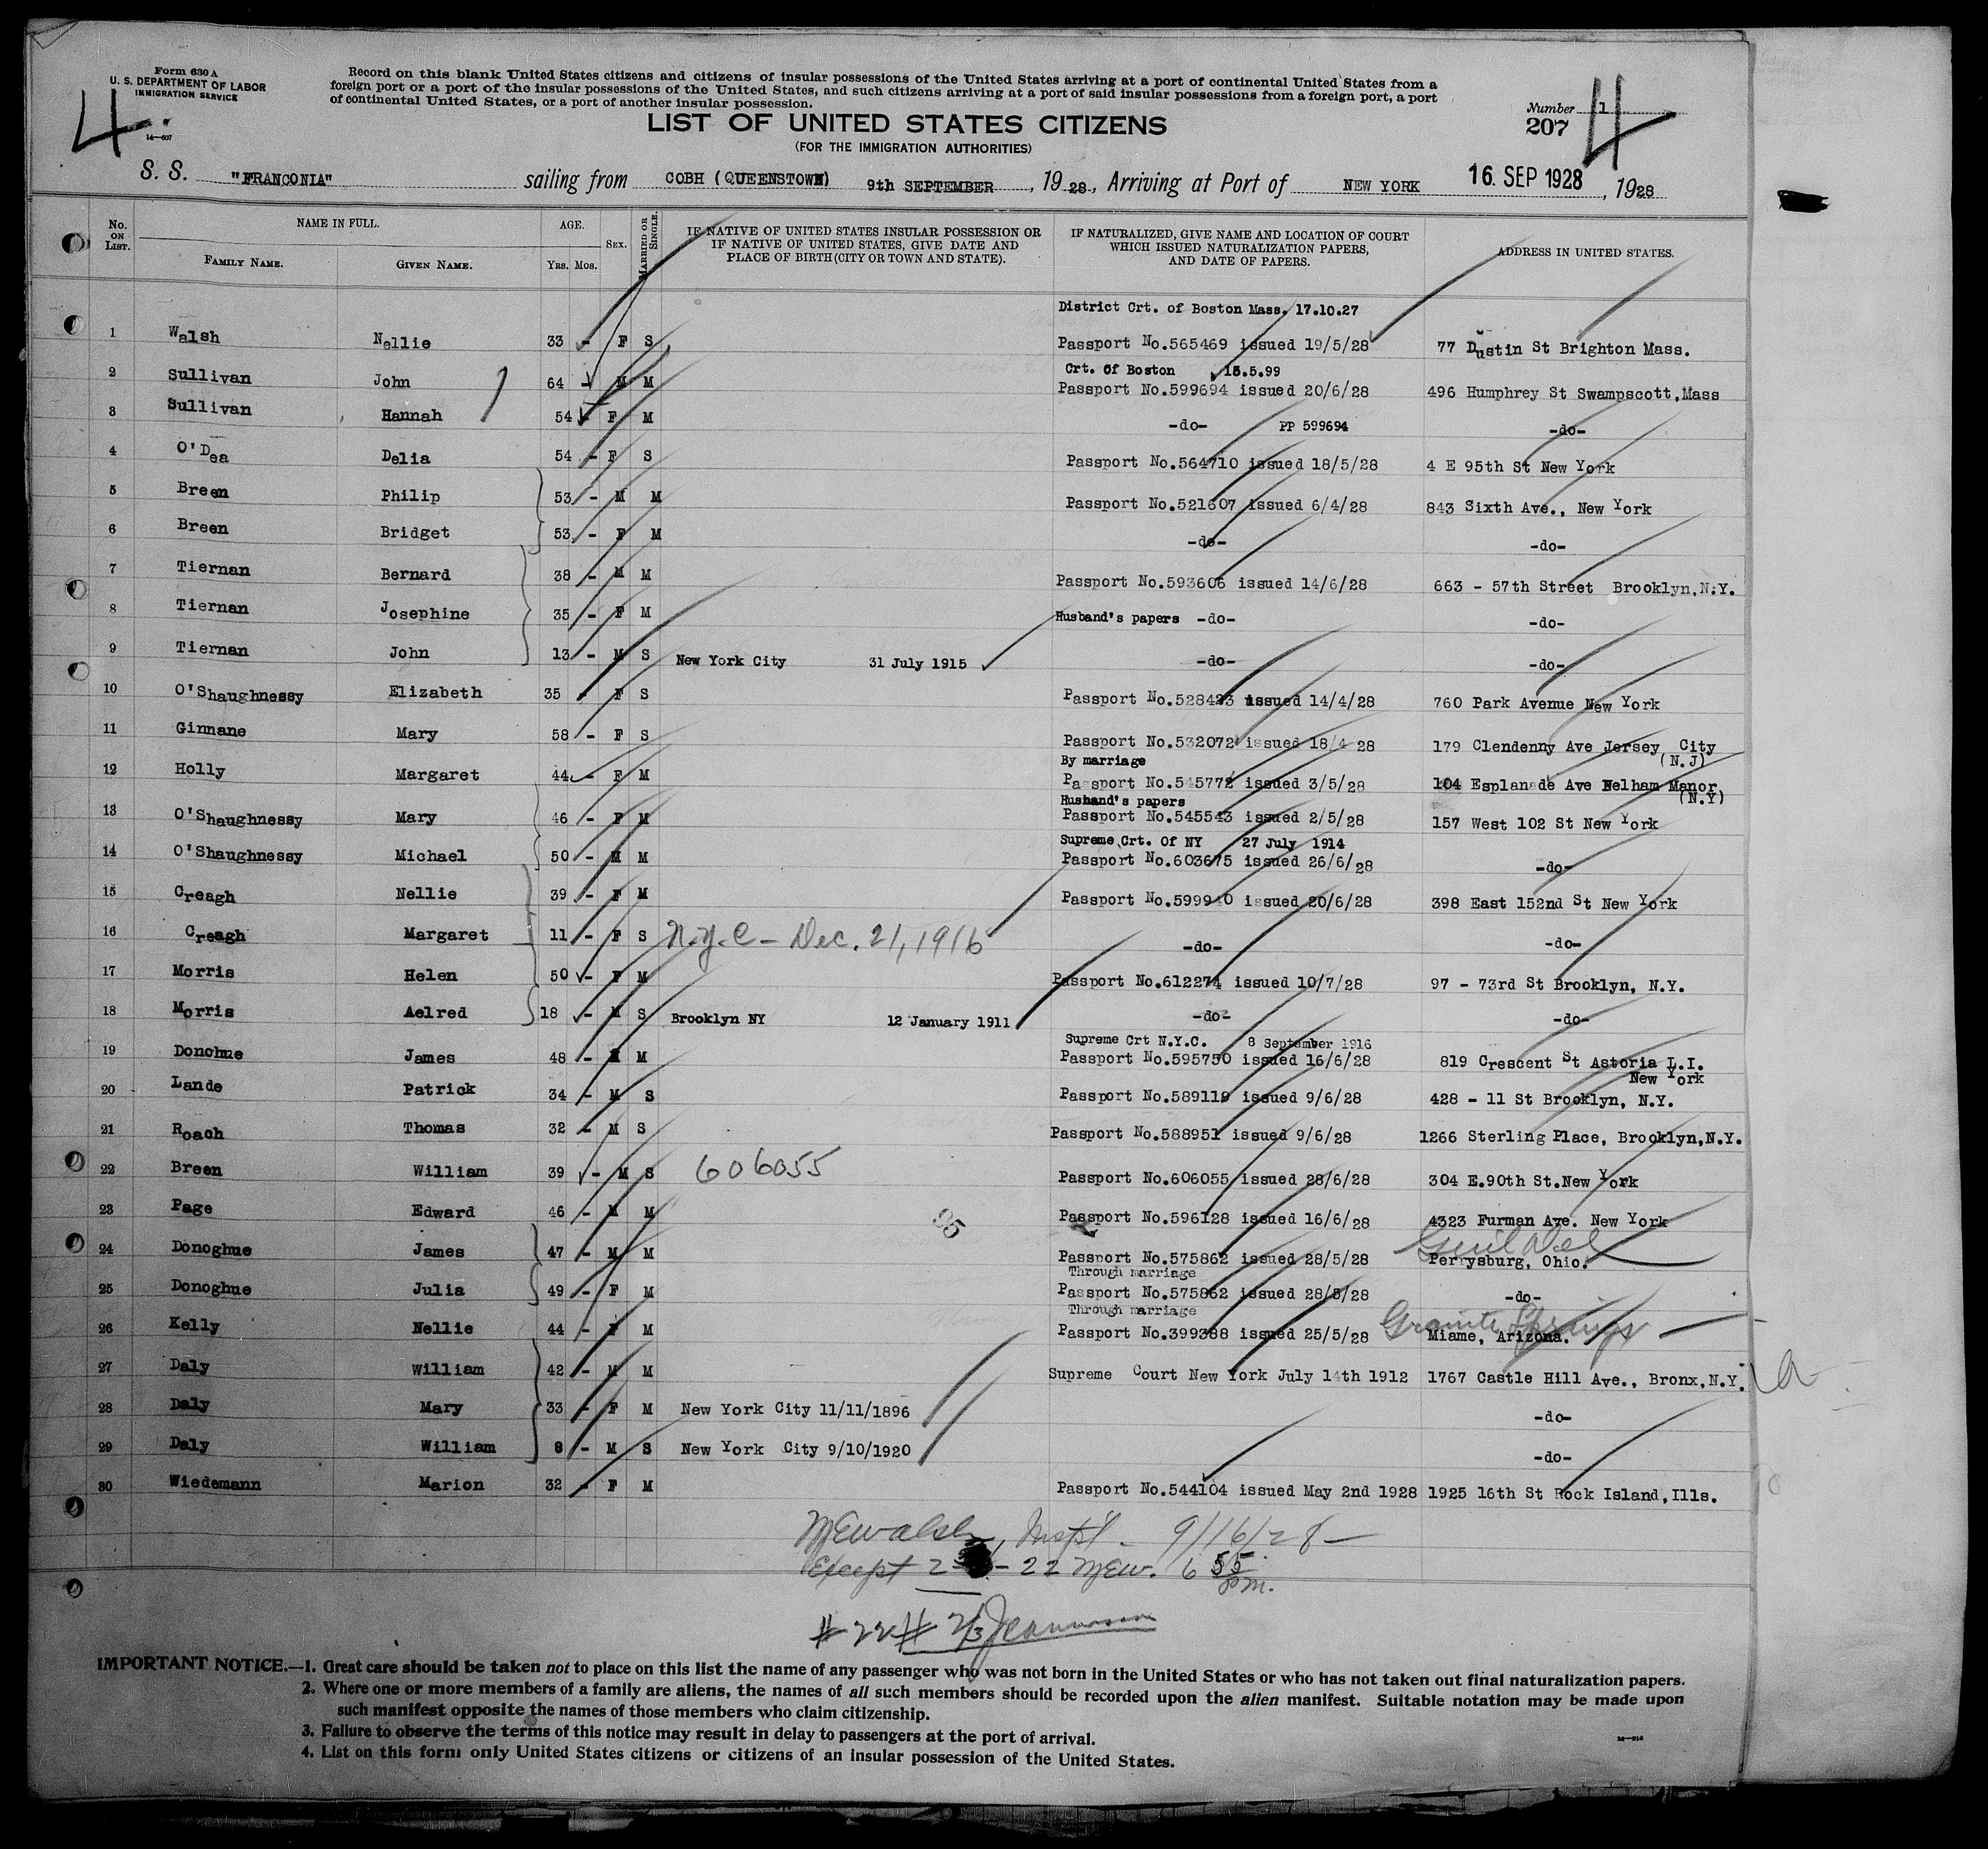 Form 630 A
U. S. DEPARTMENT OF LABOR
IMMIGRATION SERVICE
14—607
4
Record on this blank United States citizens and citizens of insular possessions of the United States arriving at a port of continental United States from a
foreign port or a port of the insular possessions of the United States, and such citizens arriving at a port of said insular possessions from a foreign port, a port
of continental United States, or a port of another insular possession.
LIST OF UNITED STATES CITIZENS
(FOR THE IMMIGRATION AUTHORITIES)
Number 1
207
4
S. S. "FRANCONIA" sailing from COBH (QUEENSTOWN) 9th SEPTEMBER, 19 28, Arriving at Port of NEW YORK 16. SEP 1928, 1928
No. ON LIST. NAME IN FULL. FAMILY NAME. GIVEN NAME. AGE. YRS. MOS. SEX. MARRIED OR SINGLE. IF NATIVE OF UNITED STATES INSULAR POSSESSION OR IF NATIVE OF UNITED STATES, GIVE DATE AND PLACE OF BIRTH (CITY OR TOWN AND STATE). IF NATURALIZED, GIVE NAME AND LOCATION OF COURT WHICH ISSUED NATURALIZATION PAPERS, AND DATE OF PAPERS. ADDRESS IN UNITED STATES.
District Crt. of Boston Mass. 17.10.27
1 Walsh Nellie 33 - F S Passport No.565469 issued 19/5/28 77 Dustin St Brighton Mass.
Crt. Of Boston 15.5.99
2 Sullivan John 64 - M M Passport No.599694 issued 20/6/28 496 Humphrey St Swampscott,Mass
3 Sullivan Hannah 54 - F M -do- PP 599694 -do-
4 O'Dea Delia 54 - F S Passport No.564710 issued 18/5/28 4 E 95th St New York
5 Breen Philip 53 - M M Passport No.521607 issued 6/4/28 843 Sixth Ave., New York
6 Breen Bridget 53 - F M -do- -do-
7 Tiernan Bernard 38 - M M Passport No.593606 issued 14/6/28 663 - 57th Street Brooklyn,N.Y.
8 Tiernan Josephine 35 - F M Husband's papers -do- -do-
9 Tiernan John 13 - M S New York City 31 July 1915 -do- -do-
10 O'Shaughnessy Elizabeth 35 - F S Passport No.528423 issued 14/4/28 760 Park Avenue New York
11 Ginnane Mary 58 - F S Passport No.532072 issued 18/4 28 179 Clendenny Ave Jersey City
(N.J)
By marriage
12 Holly Margaret 44 - F M Passport No.545772 issued 3/5/28 104 Esplanade Ave Pelham Manor
(N.Y)
Husband's papers
13 O'Shaughnessy Mary 46 - F M Passport No.545543 issued 2/5/28 157 West 102 St New York
Supreme Crt. Of NY 27 July 1914
14 O'Shaughnessy Michael 50 - M M Passport No.603675 issued 26/6/28 -do-
15 Creagh Nellie 39 - F M Passport No.599940 issued 20/6/28 398 East 152nd St New York
16 Creagh Margaret 11 - F S N.Y.C - Dec. 21, 1916 -do- -do-
17 Morris Helen 50 - F M Passport No.612274 issued 10/7/28 97 - 73rd St Brooklyn, N.Y.
18 Morris Aelred 18 - M S Brooklyn NY 12 January 1911 -do- -do-
Supreme Crt N.Y.C. 8 September 1916
19 Donohue James 48 - M M Passport No.595750 issued 16/6/28 819 Crescent St Astoria L.I.
New York
20 Lande Patrick 34 - M S Passport No.589119 issued 9/6/28 428 - 11 St Brooklyn, N.Y.
21 Roach Thomas 32 - M S Passport No.588951 issued 9/6/28 1266 Sterling Place, Brooklyn,N.Y.
22 Breen William 39 - M S 606055 Passport No.606055 issued 28/6/28 304 E.90th St.New York
23 Page Edward 46 - M M Passport No.596128 issued 16/6/28 4323 Furman Ave. New York
24 Donoghue James 47 - M M Passport No.575862 issued 28/5/28 Perrysburg, Ohio.
Through marriage
25 Donoghue Julia 49 - F M Passport No.575862 issued 28/5/28 -do-
Through marriage Granite Springs
26 Kelly Nellie 44 - F M Passport No.399388 issued 25/5/28 Miame, Arizona.
27 Daly William 42 - M M Supreme Court New York July 14th 1912 1767 Castle Hill Ave., Bronx,N.Y.
28 Daly Mary 33 - F M New York City 11/11/1896 -do-
29 Daly William 8 - M S New York City 9/10/1920 -do-
30 Wiedemann Marion 32 - F M Passport No.544104 issued May 2nd 1928 1925 16th St Rock Island,Ills.
MEWalsh, Insp'l - 9/16/28 -
Except 2- - 22 MEW. 6 55 pm.
#22 # 2/3
IMPORTANT NOTICE.—1. Great care should be taken not to place on this list the name of any passenger who was not born in the United States or who has not taken out final naturalization papers.
2. Where one or more members of a family are aliens, the names of all such members should be recorded upon the alien manifest. Suitable notation may be made upon
such manifest opposite the names of those members who claim citizenship.
3. Failure to observe the terms of this notice may result in delay to passengers at the port of arrival.
4. List on this form only United States citizens or citizens of an insular possession of the United States.